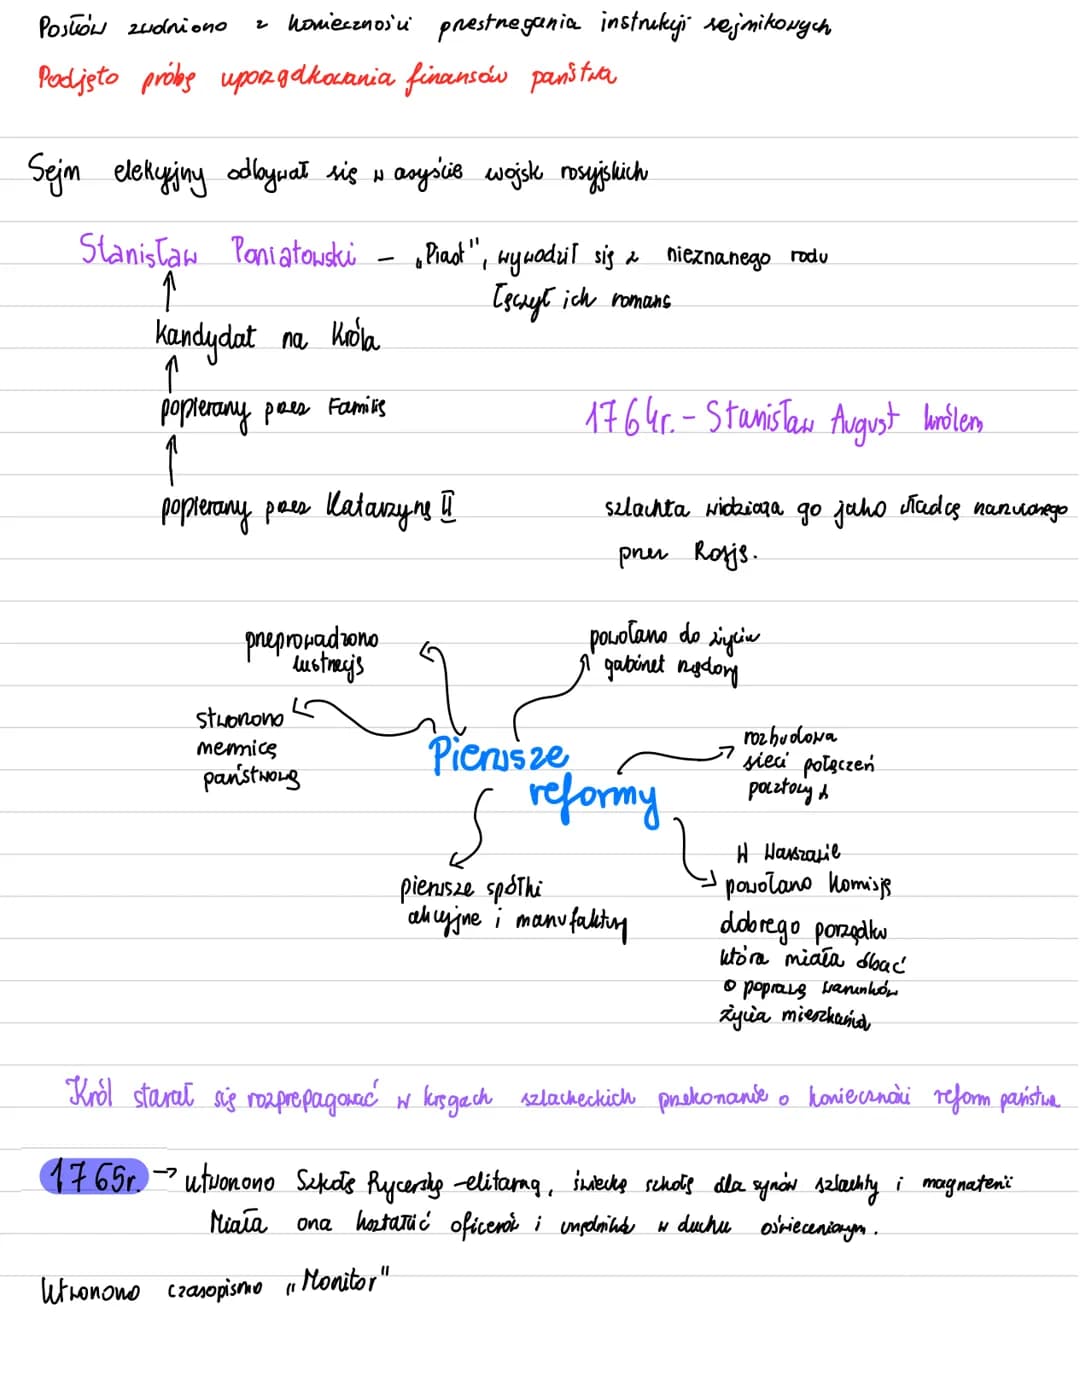 Posłów zwolniono z konieczności przestrzegania instrukcji sejmikowych
Podjęto próbę uporządkowania finansów państwa
Sejm elekcyjny odbywał się w asyście wojsk rosyjskich
Stanisław Poniatowski – „Piast", wywodził się z nieznanego rodu
łączył ich romans
kandydat na króla
popierany przez Familię
1764r. – Stanisław August królem
popierany przez Katarzynę II
szlachta widziała go jako władcę narzuconego
przez Rosję.
przeprowadzono
lustrację
powołano do życia
gabinet rządowy
stworzono
mennicę
państwową
Pierwsze
reformy
rozbudowa
sieci połączeń
pocztowych
pierwsze spółki
akcyjne i manufaktury
W Warszawie
powołano Komisję
dobrego porządku
która miała dbać
o poprawę warunków
życia mieszkańców
Król starał się rozpropagować w kręgach szlacheckich przekonanie o konieczności reform państwa
1765r. → utworzono Szkołę Rycerską – elitarną, świecką szkołę dla synów szlachty i magnaterii
Miała ona kształcić oficerów i urzędników w duchu oświeceniowym.
Utworzono czasopismo „Monitor"